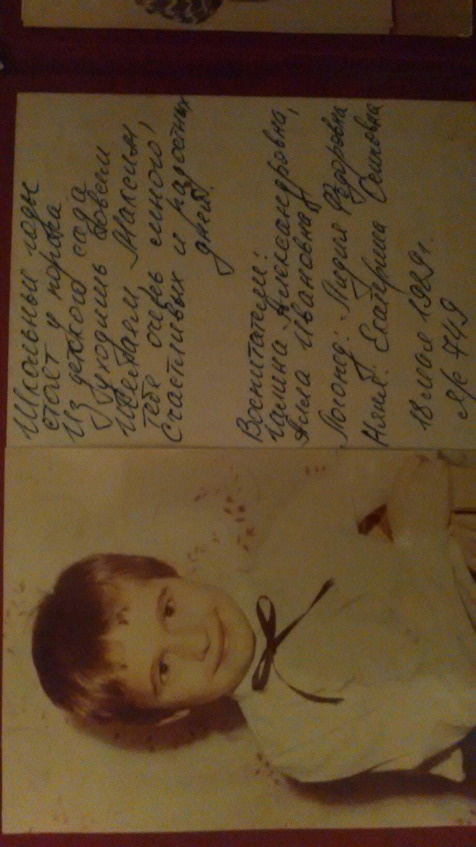 Школьные годы
стоят у порога
Из детского сада
уходишь совсем
Желаем, Максим,
тебе очень много,
Счастливых и радостных
дней.
Воспитатели:
Галина Александровна,
Алла Ивановна,
Логопед: Лидия Фёдоровна
Няня: Екатерина Осиповна
18 мая 1989г.
Я/с 749